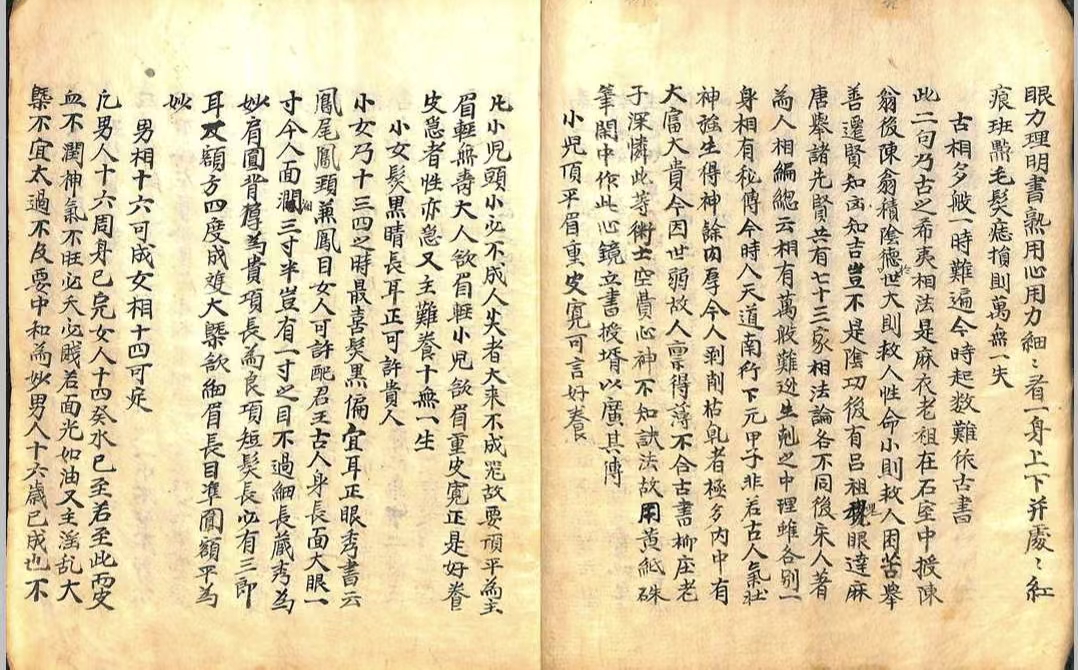 眼力理明書熟用心用力細〻看一身上下并處〻紅
痕班㸃毛髮痣損則萬無一失
古相多般一時難遍今時起数難依古書
此二句乃古之希夷相法是麻衣老祖在石室中授陳
翁後陳翁積陰德世大則救人性命小則救人困苦舉
善遷賢知凶知吉豈不是陰功後有呂祖眼達麻
唐舉諸先賢共有七十三家相法論各不同後宋人著
為人相編緫云相有萬般難逃生剋之中理雖各別一
身相有秘傳今時入天道南行下元甲子非若古人氣壯
神強生得神餘肉厚今人剥削枯乹者極多内中有
大富大貴今因世弱故人禀得薄不合古書柳庒老
子深憐此等術士空費心神不知訣法故用黄紙硃
筆閑中作此心鏡立書授壻以廣其傳
小兒頂平眉重皮寛可言好養
凡小兒頭小必不成人尖者大來不成器故要頂平為主
眉輕無壽大人欲眉輕小兒欲眉重皮寛正是好養
皮急者性亦急又主難養十無一生
小女髮黒睛長耳正可許貴人
小女乃十三四之時最喜髮黒偏宜耳正眼秀書云
鳳尾鳳頸兼鳳目女人可許配君王古人身長面大眼一
寸今人面濶三寸半豈有一寸之目不過細長藏秀為
妙肩圓背厚為貴項長為良項短髮長必有三即
耳及額方四度成雙大槩欲細眉長目準圓額平為
妙
男相十六可成女相十四可定
凡男人十六周身已完女人十四癸水已至若至此而皮
血不潤神氣不旺必夭必賤若面光如油又主滛乱大
槩不宜太過不及要中和為妙男人十六歲已成也不